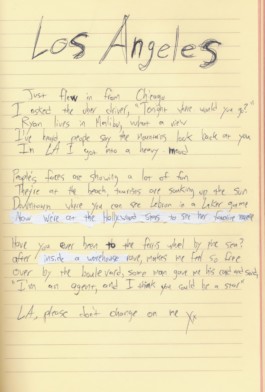 Los Angeles
Just flew in from Chicago
I asked the uber driver, "Tonight where would you go?"
Ryan lives in Malibu, what a view
I've heard people say the mountains look back at you
In LA I got into a heavy mood
People's faces are showing a lot of fun
They're at the beach, tourists are soaking up the sun
Downtown where you can see Lebron in a Laker game
Now we're at the Hollywood sign, to see her favorite name
Have you ever been to the ferris wheel by the sea?
after inside a warehouse rave, makes me feel so fine
over by the boulevard, some man gave me his card and said,
"I'm an agent, and I think you could be a star"
L.A., please don't change on me